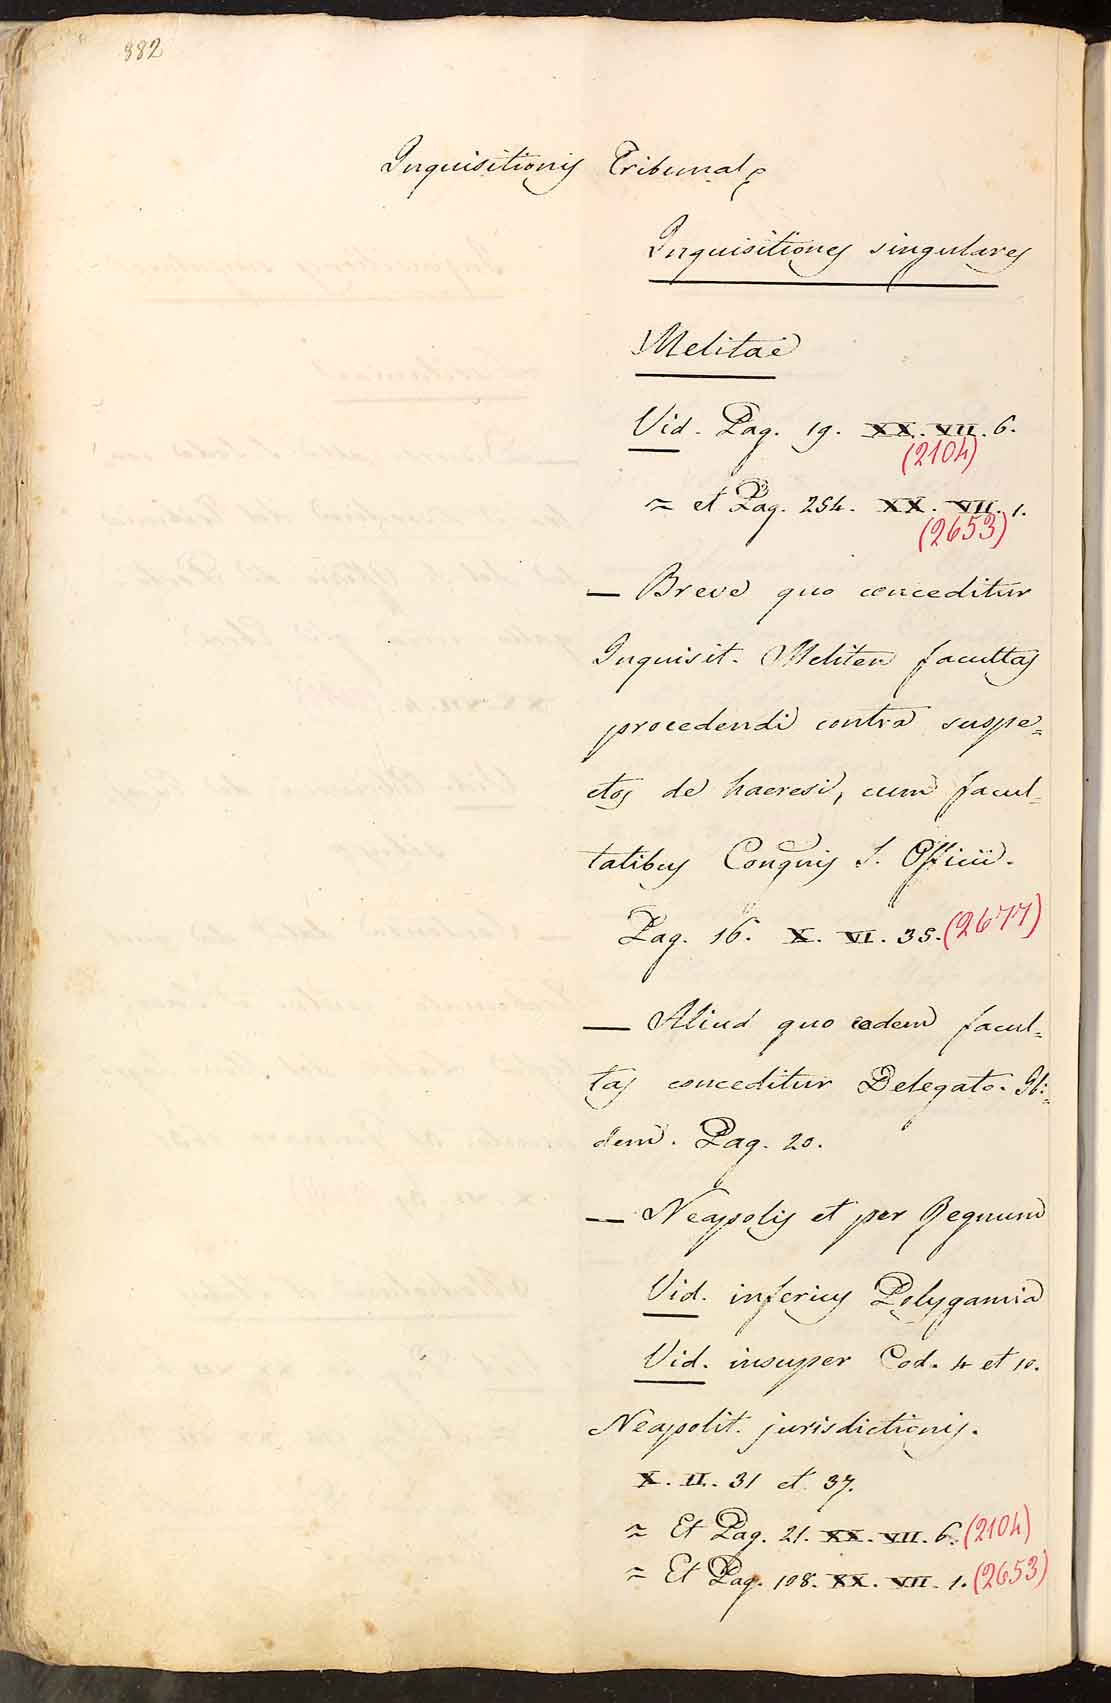 882
Inquisitionis Tribunal
Inquisitiones singulares
Melitae
Vid. Pag. 19. XX. VII. 6.
(2104)
≈ et Pag. 254. XX. VII. 1.
(2653)
— Breve quo conceditur
Inquisit. Meliten facultas
procedendi contra suspe=
ctos de haeresi, cum facul=
tatibus Congnis S. Officii.
Pag. 16. X. VI. 35. (2677)
— Aliud quo eadem facul=
tas conceditur Delegato. Ibi=
dem. Pag. 20.
— Neapolis et per Regnum
Vid. inferius Polygamia
Vid. insuper Cod. 4 et 10.
Neapolit. jurisdictionis.
X. II. 31 et 37.
≈ Et Pag. 21. XX. VII. 6. (2104)
≈ Et Pag. 198. XX. VII. 1. (2653)